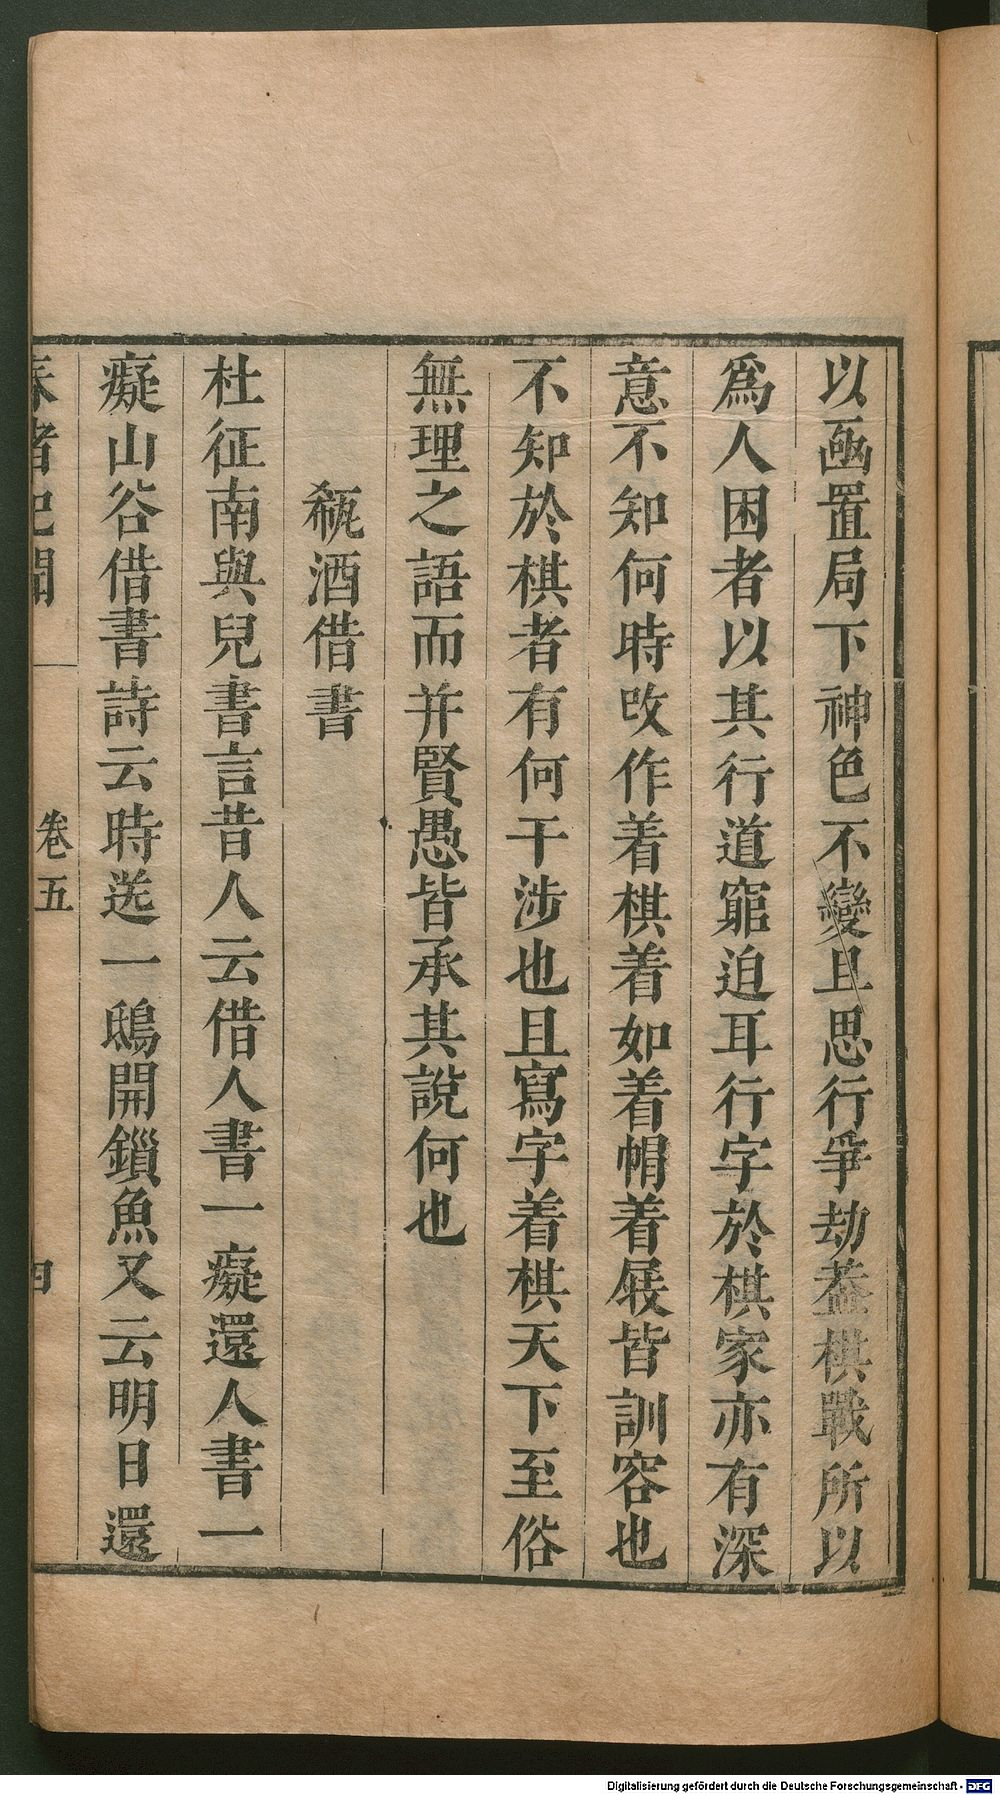 以凾置局下神色不變且思行爭劫葢棋戰所以
爲人困者以其行道窮迫耳行字於棋家亦有深
意不知何時攺作着棋着如着帽着屐皆訓容也
不知於棋者有何干涉也且寫字着棋天下至俗
無理之語而并賢愚皆承其說何也
瓻酒借書
杜征南與兒書言昔人云借人書一癡還人書一
癡山谷借書詩云時送一鴟開鎻魚又云明日還
春渚紀聞 卷五 四
Digitalisierung gefördert durch die Deutsche Forschungsgemeinschaft - DFG